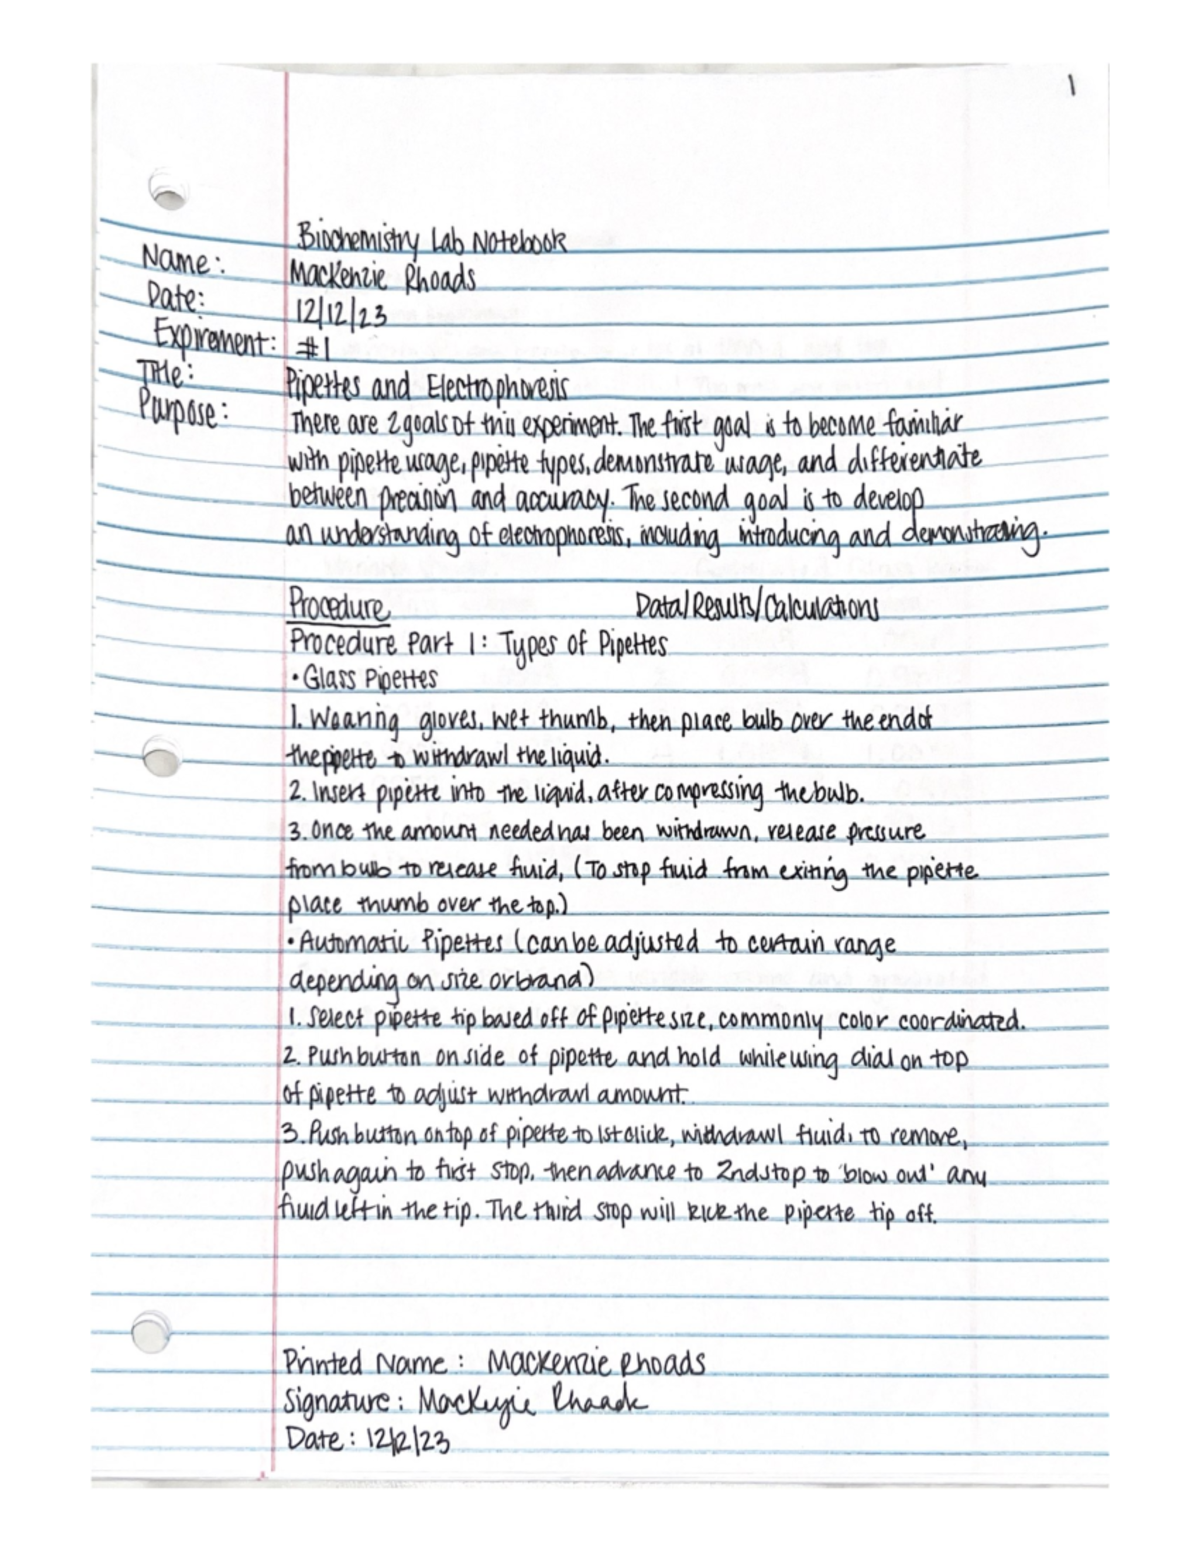 1
Biochemistry Lab Notebook
Name: MacKenzie Rhoads
Date: 12/12/23
Expirement: #1
Title: Pipettes and Electrophoresis
Purpose: There are 2 goals of this experiment. The first goal is to become familiar
with pipette usage, pipette types, demonstrate usage, and differentiate
between precision and accuracy. The second goal is to develop
an understanding of electrophoresis, including introducing and demonstrating.
Procedure Data/Results/Calculations
Procedure Part 1: Types of Pipettes
• Glass Pipettes
1. Wearing gloves, wet thumb, then place bulb over the end of
the pipette to withdrawl the liquid.
2. Insert pipette into the liquid, after compressing the bulb.
3. Once the amount needed has been withdrawn, release pressure
from bulb to release fluid, (To stop fluid from exiting the pipette
place thumb over the top.)
• Automatic Pipettes (can be adjusted to certain range
depending on size or brand)
1. Select pipette tip based off of pipette size, commonly color coordinated.
2. Push button on side of pipette and hold while using dial on top
of pipette to adjust withdrawl amount.
3. Push button on top of pipette to 1st click, withdrawl fluid, to remove,
push again to first stop, then advance to 2nd stop to 'blow out' any
fluid left in the tip. The third stop will kick the pipette tip off.
Printed Name: MacKenzie Rhoads
Signature: MacKenzie Rhoads
Date: 12/12/23